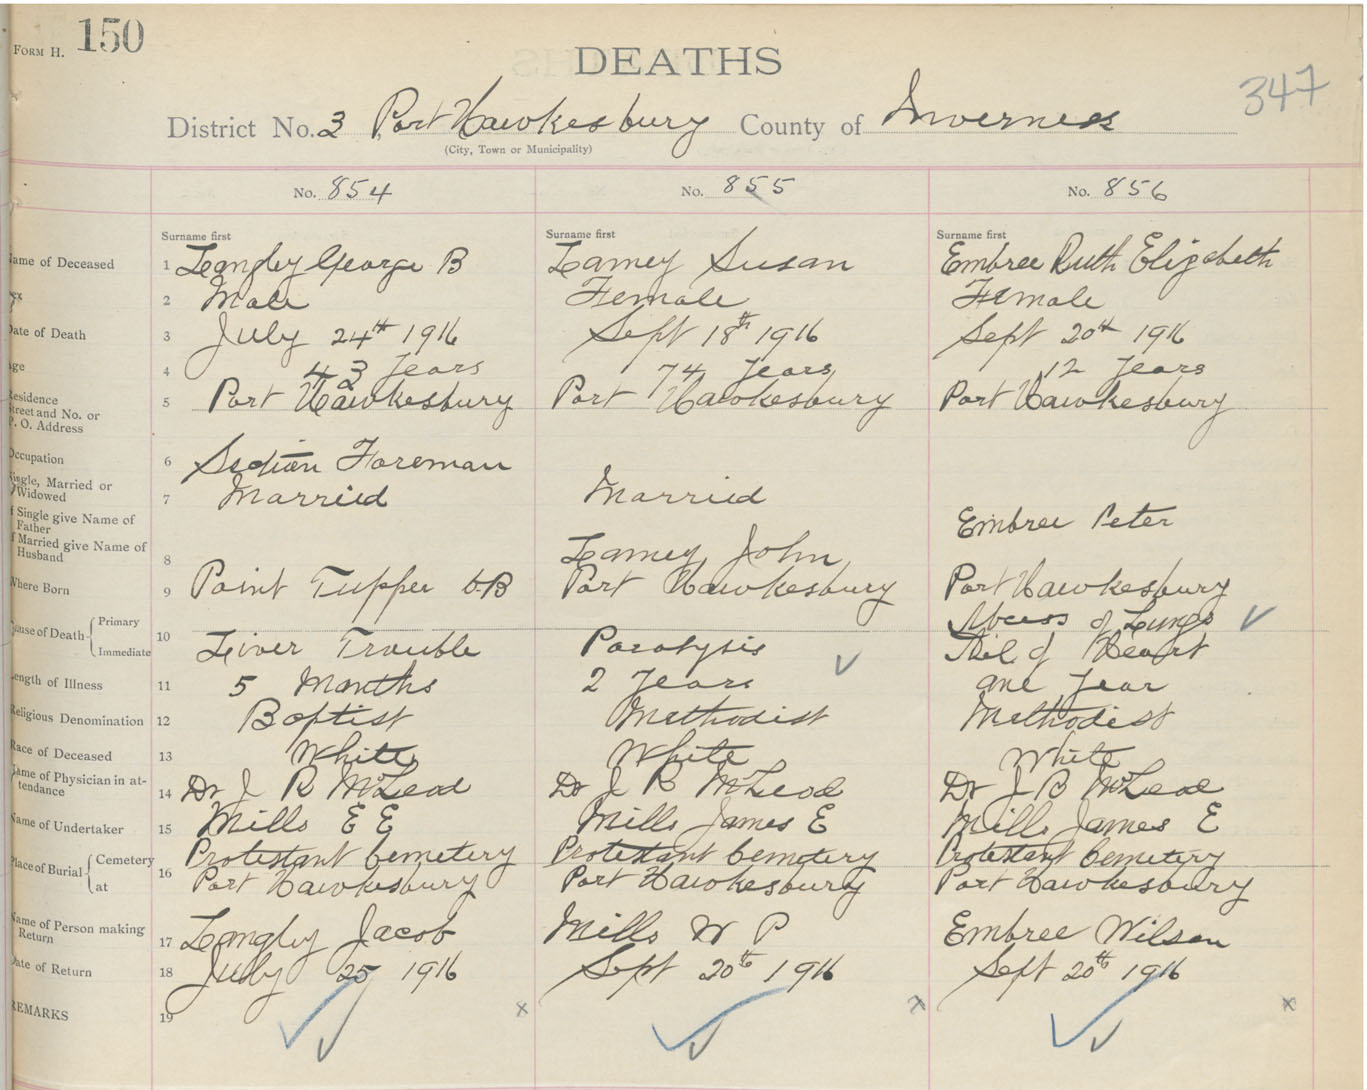 FORM H. 150
DEATHS
347
District No. 3 Port Hawkesbury County of Inverness
(City, Town or Municipality)
No. 854 No. 855 No. 856
Surname first Surname first Surname first
Name of Deceased 1 Langley George B Lamey Susan Embree Ruth Elizabeth
Sex 2 Male Female Female
Date of Death 3 July 24th 1916 Sept 18th 1916 Sept 20th 1916
Age 4 43 Years 74 Years 12 Years
Residence Street and No. or P. O. Address 5 Port Hawkesbury Port Hawkesbury Port Hawkesbury
Occupation 6 Section Foreman
Single, Married or Widowed 7 Married Married
If Single give Name of Father Embree Peter
If Married give Name of Husband 8 Lamey John
Where Born 9 Point Tupper C.B Port Hawkesbury Port Hawkesbury
Cause of Death Primary Abcess of Lungs
Immediate 10 Liver Trouble Paralysis Dil. of Heart
Length of Illness 11 5 Months 2 Years one Year
Religious Denomination 12 Baptist Methodist Methodist
Race of Deceased 13 White White White
Name of Physician in attendance 14 Dr J R McLeod Dr J R McLeod Dr J B McLeod
Name of Undertaker 15 Mills E E Mills James E Mills James E
Place of Burial Cemetery Protestant Cemetery Protestant Cemetery Protestant Cemetery
at 16 Port Hawkesbury Port Hawkesbury Port Hawkesbury
Name of Person making Return 17 Langley Jacob Mills W P Embree Wilson
Date of Return 18 July 25 1916 Sept 20th 1916 Sept 20th 1916
REMARKS 19 x x x